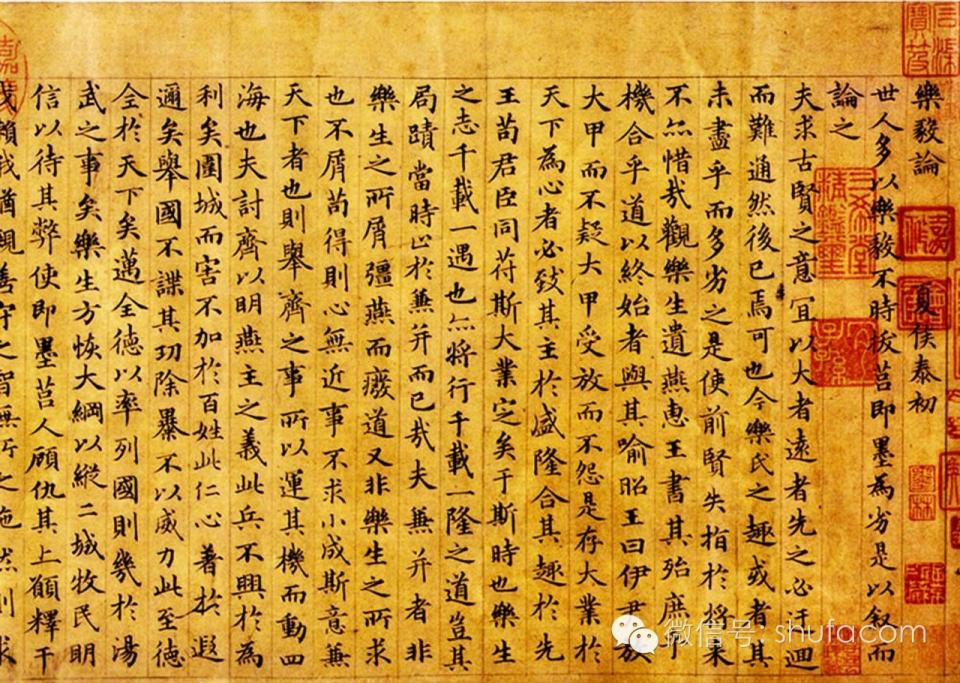 樂毅論 夏侯泰初
世人多以樂毅不時拔莒即墨為劣是以叙而
論之
夫求古賢之意宜以大者遠者先之必迂迴
而難通然後已焉可也今樂氏之趣或者其
未盡乎而多劣之是使前賢失指於將来
不亦惜哉觀樂生遺燕惠王書其殆庶乎
機合乎道以終始者與其喻昭王曰伊尹放
大甲而不疑大甲受放而不怨是存大業於
天下為心者必致其主於盛隆合其趣於先
王苟君臣同苻斯大業定矣于斯時也樂生
之志千載一遇也亦將行千載一隆之道豈其
局蹟當時止於兼并而已哉夫兼并者非
樂生之所屑彊燕而廢道又非樂生之所求
也不屑苟得則心無近事不求小成斯意兼
天下者也則舉齊之事所以運其機而動四
海也夫討齊以明燕主之義此兵不興於為
利矣圍城而害不加於百姓此仁心著於遐
邇矣舉國不謀其功除暴不以威力此至德
全於天下矣邁全德以率列國則幾於湯
武之事矣樂生方恢大綱以縱二城牧民明
信以待其弊使即墨莒人顧仇其上願釋干
戈賴我猶親善守之智無所之施然則求
微信号: shufacom